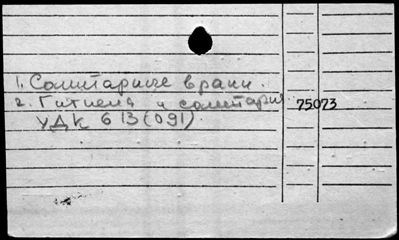 1. Санитарные врачи.
2. Гигиена и санитария 75073
УДК 613(091).